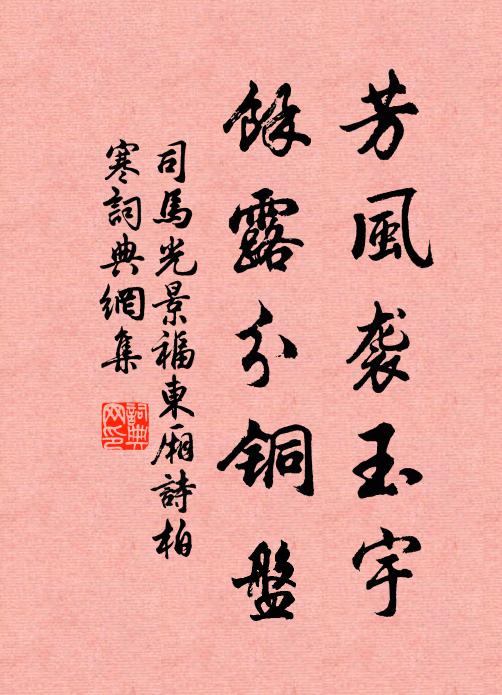 芳風袭玉宇
餘露分铜盤
司馬光景福東厢詩柏
寒詞典網集
詞典
网印